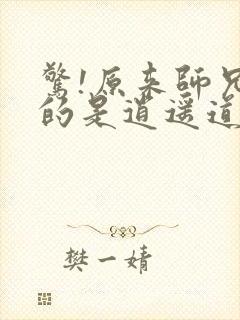 驚!原來師兄
的是逍遥道
樊一婧